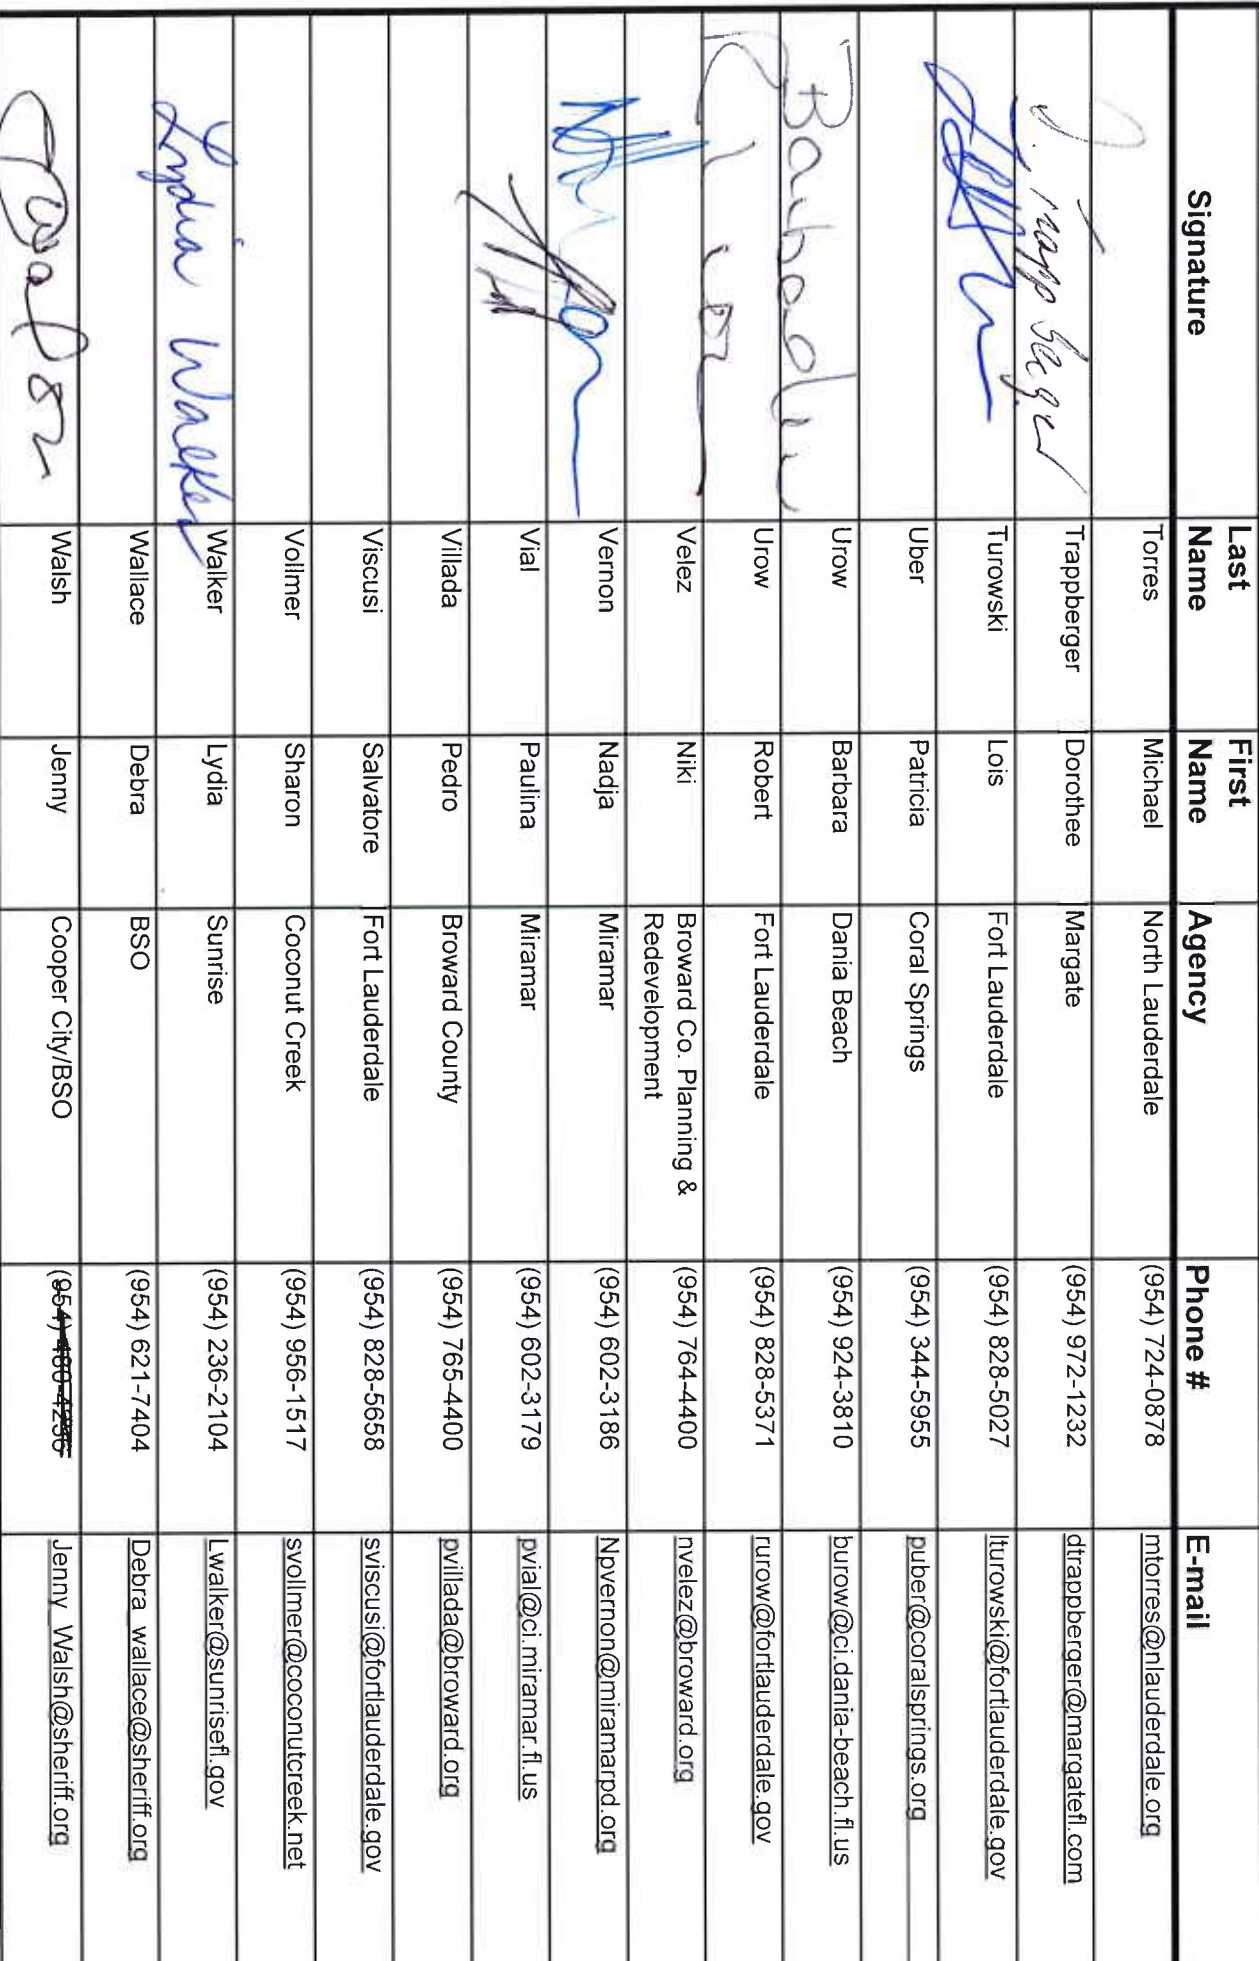 Signature Last Name First Name Agency Phone # E-mail
Torres Michael North Lauderdale (954) 724-0878 mtorres@nlauderdale.org
D. Trappberger Trappberger Dorothee Margate (954) 972-1232 dtrappberger@margatefl.com
Turowski Lois Fort Lauderdale (954) 828-5027 lturowski@fortlauderdale.gov
Uber Patricia Coral Springs (954) 344-5955 puber@coralsprings.org
Urow Barbara Dania Beach (954) 924-3810 burow@ci.dania-beach.fl.us
Urow Robert Fort Lauderdale (954) 828-5371 rurow@fortlauderdale.gov
Velez Niki Broward Co. Planning & (954) 764-4400 nvelez@broward.org
Redevelopment
Vernon Nadja Miramar (954) 602-3186 Npvernon@miramarpd.org
Vial Paulina Miramar (954) 602-3179 pvial@ci.miramar.fl.us
Villada Pedro Broward County (954) 765-4400 pvillada@broward.org
Viscusi Salvatore Fort Lauderdale (954) 828-5658 sviscusi@fortlauderdale.gov
Vollmer Sharon Coconut Creek (954) 956-1517 svollmer@coconutcreek.net
Lydia Walker Walker Lydia Sunrise (954) 236-2104 Lwalker@sunrisefl.gov
Wallace Debra BSO (954) 621-7404 Debra_wallace@sheriff.org
Walsh Jenny Cooper City/BSO (954) Jenny_Walsh@sheriff.org